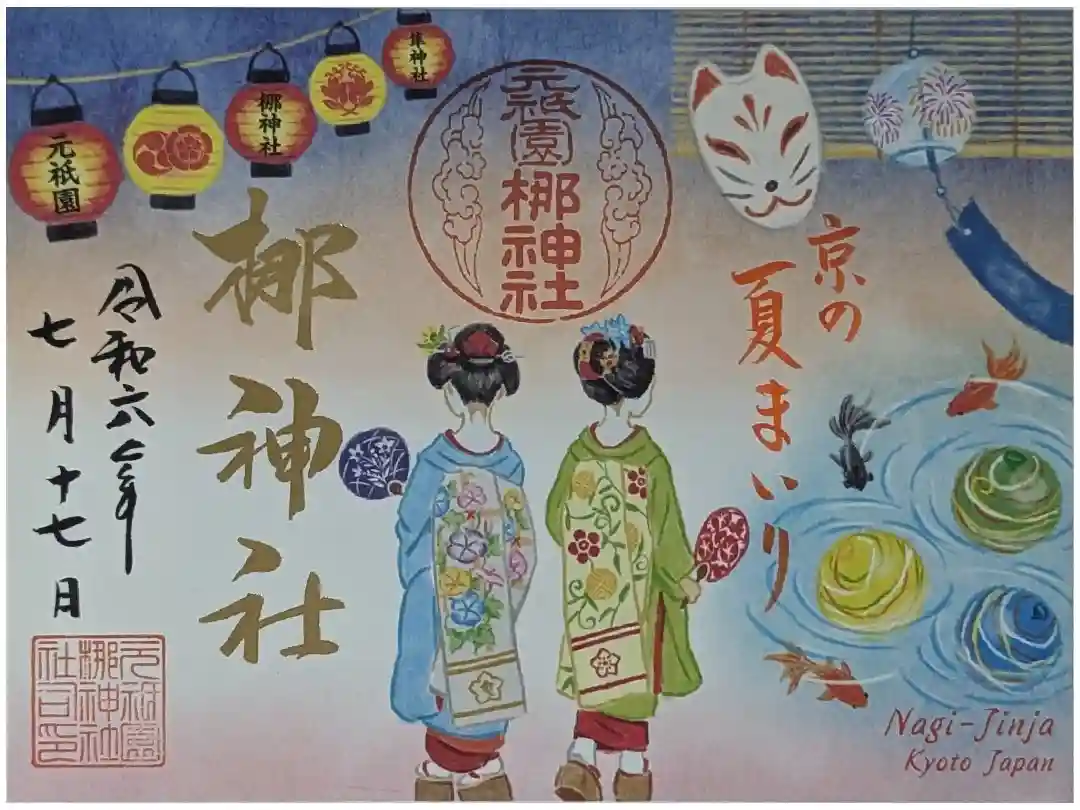 元祇園
梛神社
隼神社
元祇園
梛神社
京の
夏まいり
梛神社
令和六年
七月十七日
元祇園
梛神社
社司印
Nagi-Jinja
Kyoto Japan